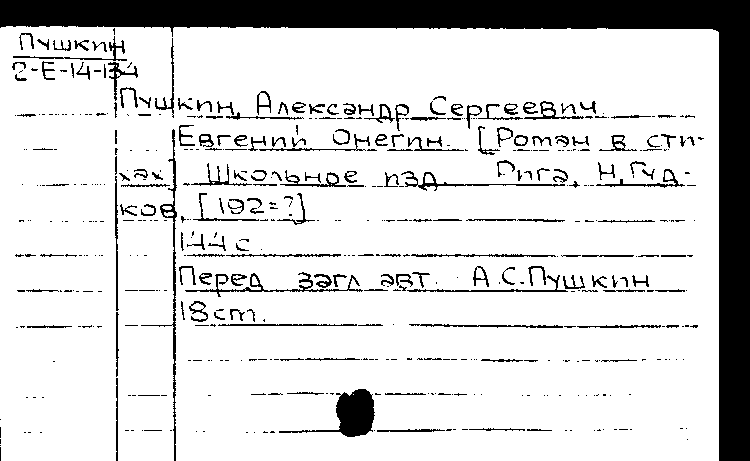 Пушкин
2-Е-14-134
Пушкин, Александр Сергеевич
Евгений Онегин. [Роман в сти-
хах] Школьное изд. Рига, Н. Гуд-
ков, [192=?]
144 с.
Перед загл авт. А.С.Пушкин
18cm.